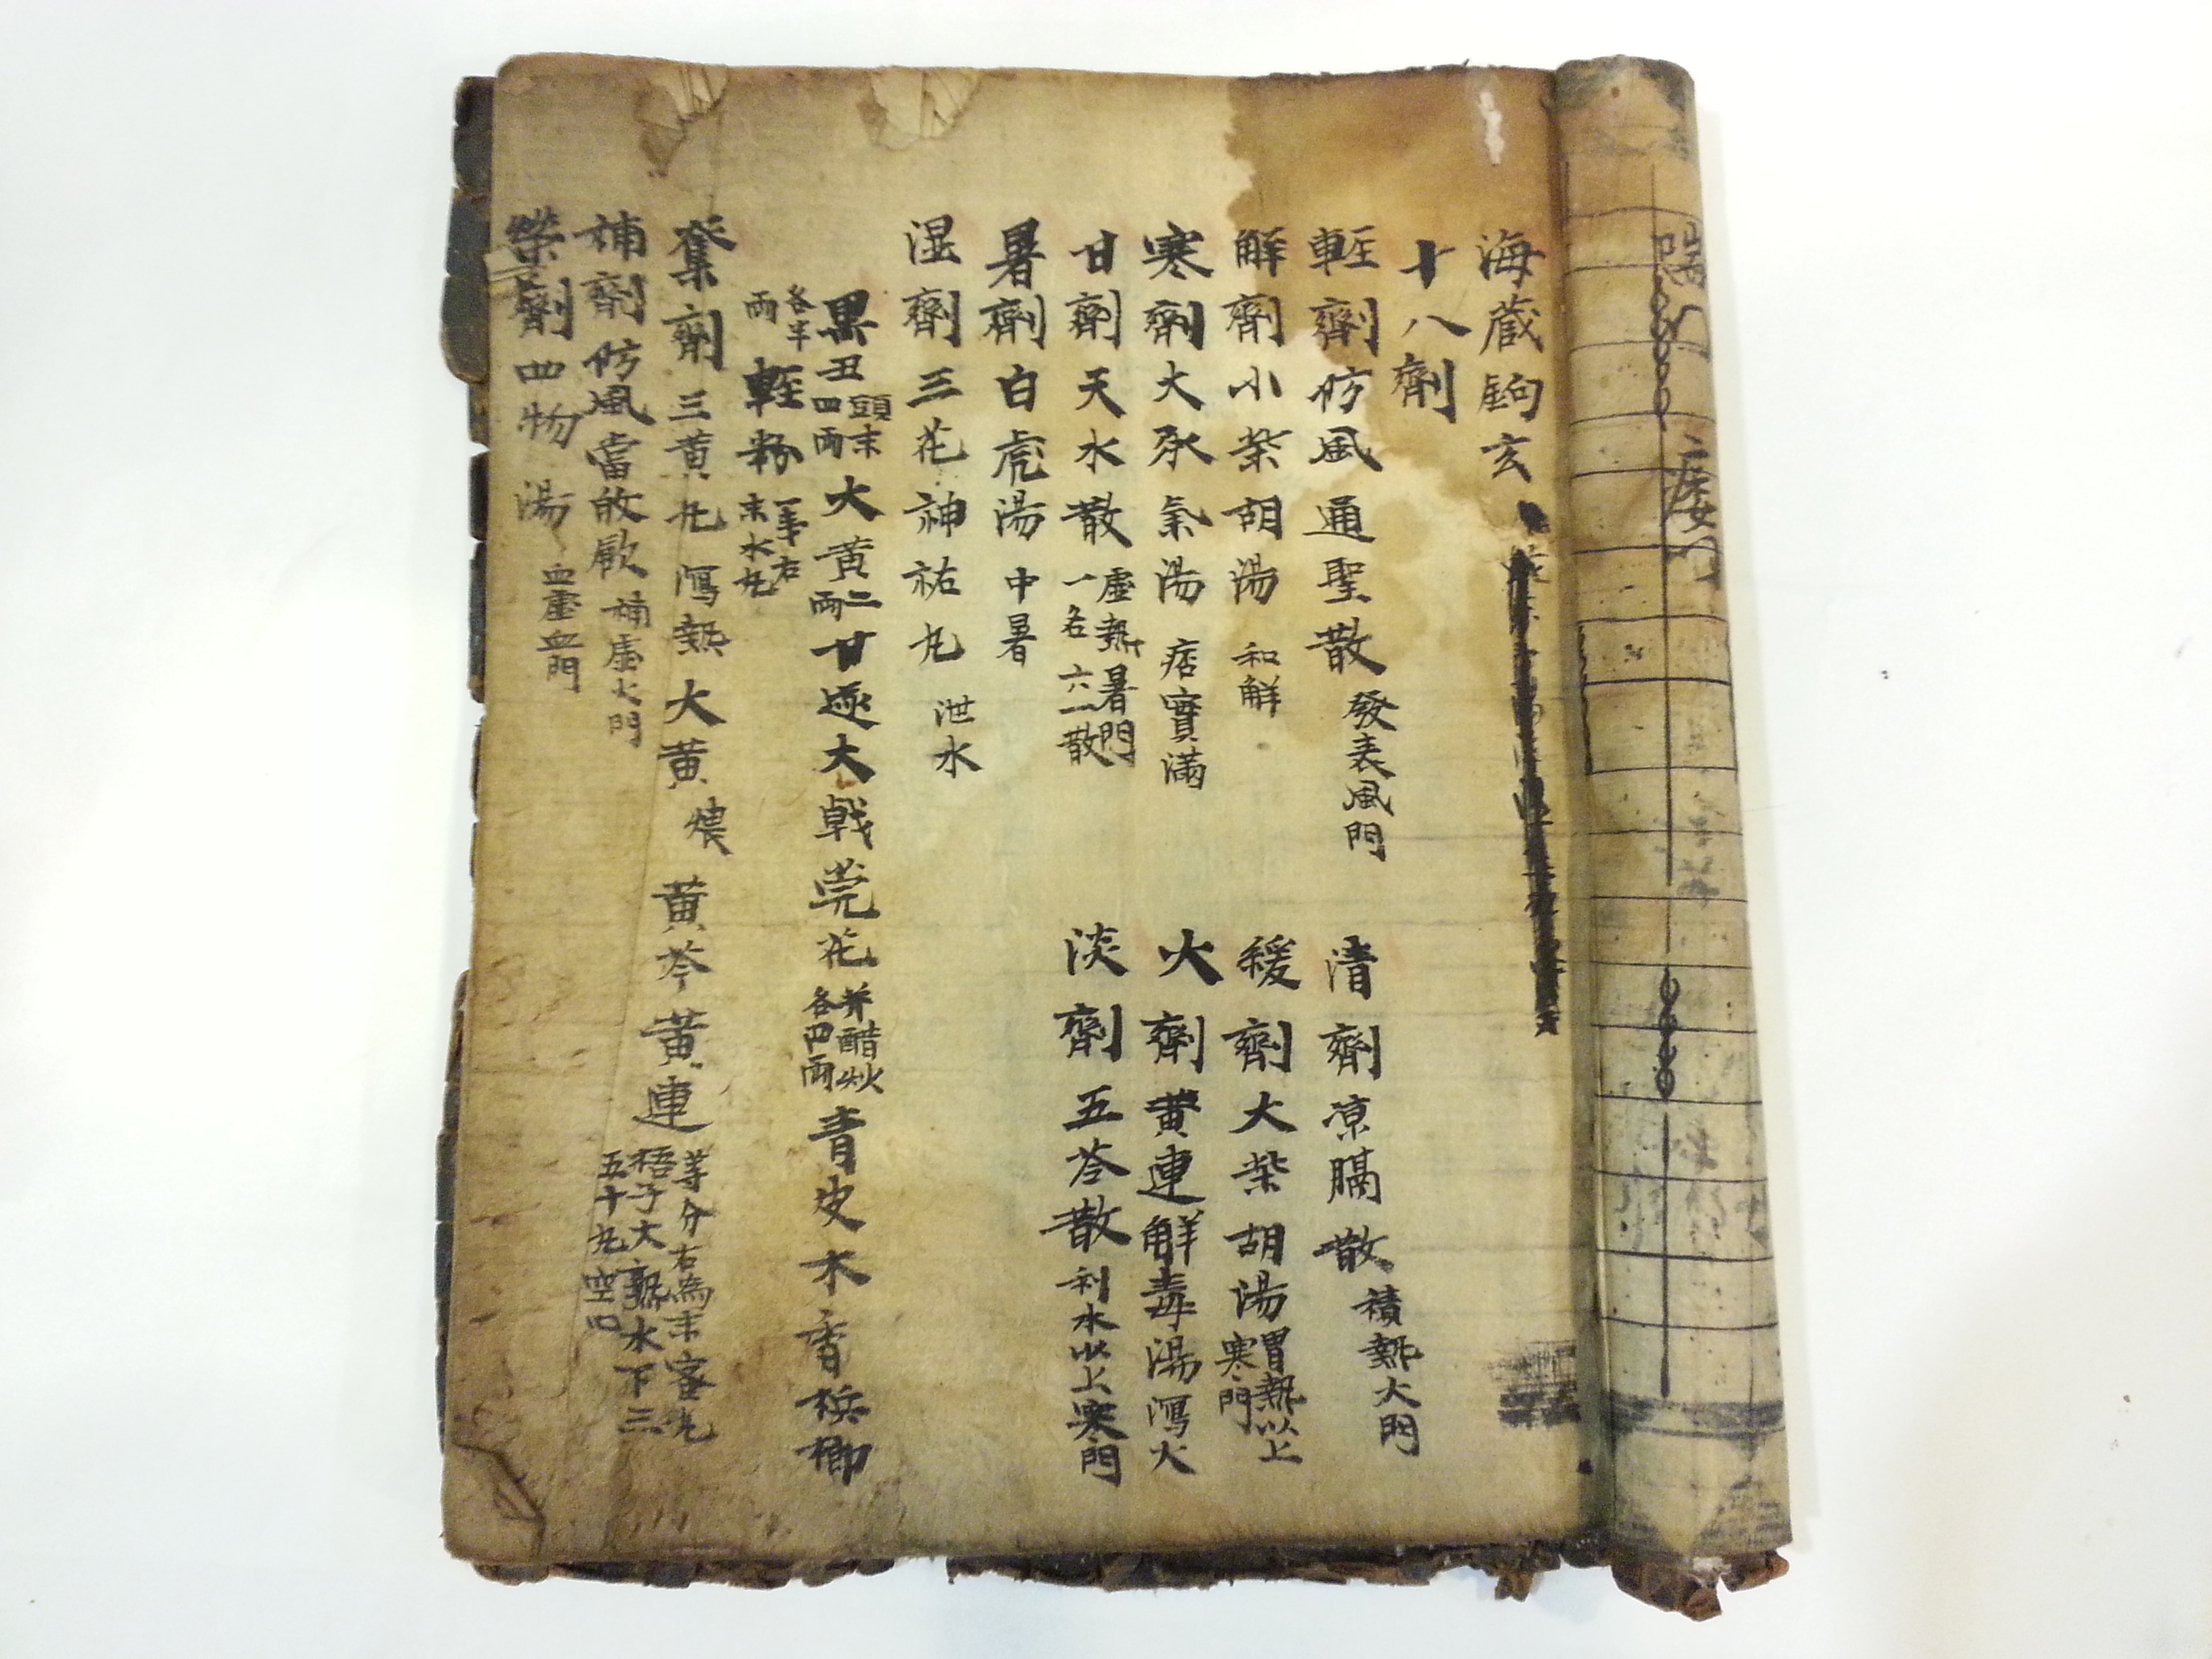 海藏鉤玄
十八劑
輕劑防風通聖散 發表風門
清劑凉膈散 積熱大門
解劑小柴胡湯 和解
緩劑大柴胡湯 胃熱以上寒門
寒劑大承氣湯 痞實滿
火劑黄連解毒湯 瀉火
甘劑天水散 虛熱暑門一名六一散
淡劑五苓散 利水以上寒門
暑劑白虎湯 中暑
湿劑三花神祐丸 泄水
黑丑頭末四兩大黄二兩甘遂大戟莞花並醋炒各四兩青皮木香梹榔
各半兩輕粉一事右末水丸
奪劑三黄丸瀉熱大黄煨黄芩黄連等分右為末蜜丸梧子大熟水下三五十丸空心
補劑防風當飲 補虛火門
榮劑四物湯 血虛血門
喘門
痿門